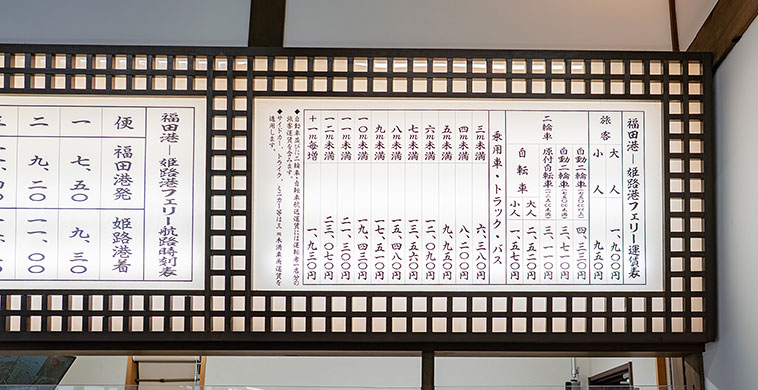 福田港―姫路港フェリー運賃表
旅客
大人 一、九〇〇円
小人 九五〇円
二輪車
自動二輪車 四、三三〇円
自動二輪車 三、七一〇円
原付自転車 三、一一〇円
自転車
大人 二、五二〇円
小人 一、五七〇円
乗用車・トラック・バス
三m未満 六、三八〇円
四m未満 八、二〇〇円
五m未満 九、九五〇円
六m未満 一二、〇九〇円
七m未満 一三、五六〇円
八m未満 一五、四八〇円
九m未満 一七、五一〇円
一〇m未満 一九、四三〇円
一一m未満 二一、三〇〇円
一二m未満 二三、〇七〇円
+一m毎増 一、九三〇円
◆自動車並びに二輪車・自転車航送運賃には運転者一名分の
旅客運賃を含みます。
◆サイドカー、トライク、ミニカー等は三m未満車両運賃を
適用します。
福田港―姫路港フェリー航路時刻表
便 福田港発 姫路港着
一 七、五〇 九、三〇
二 九、二〇 一一、〇〇